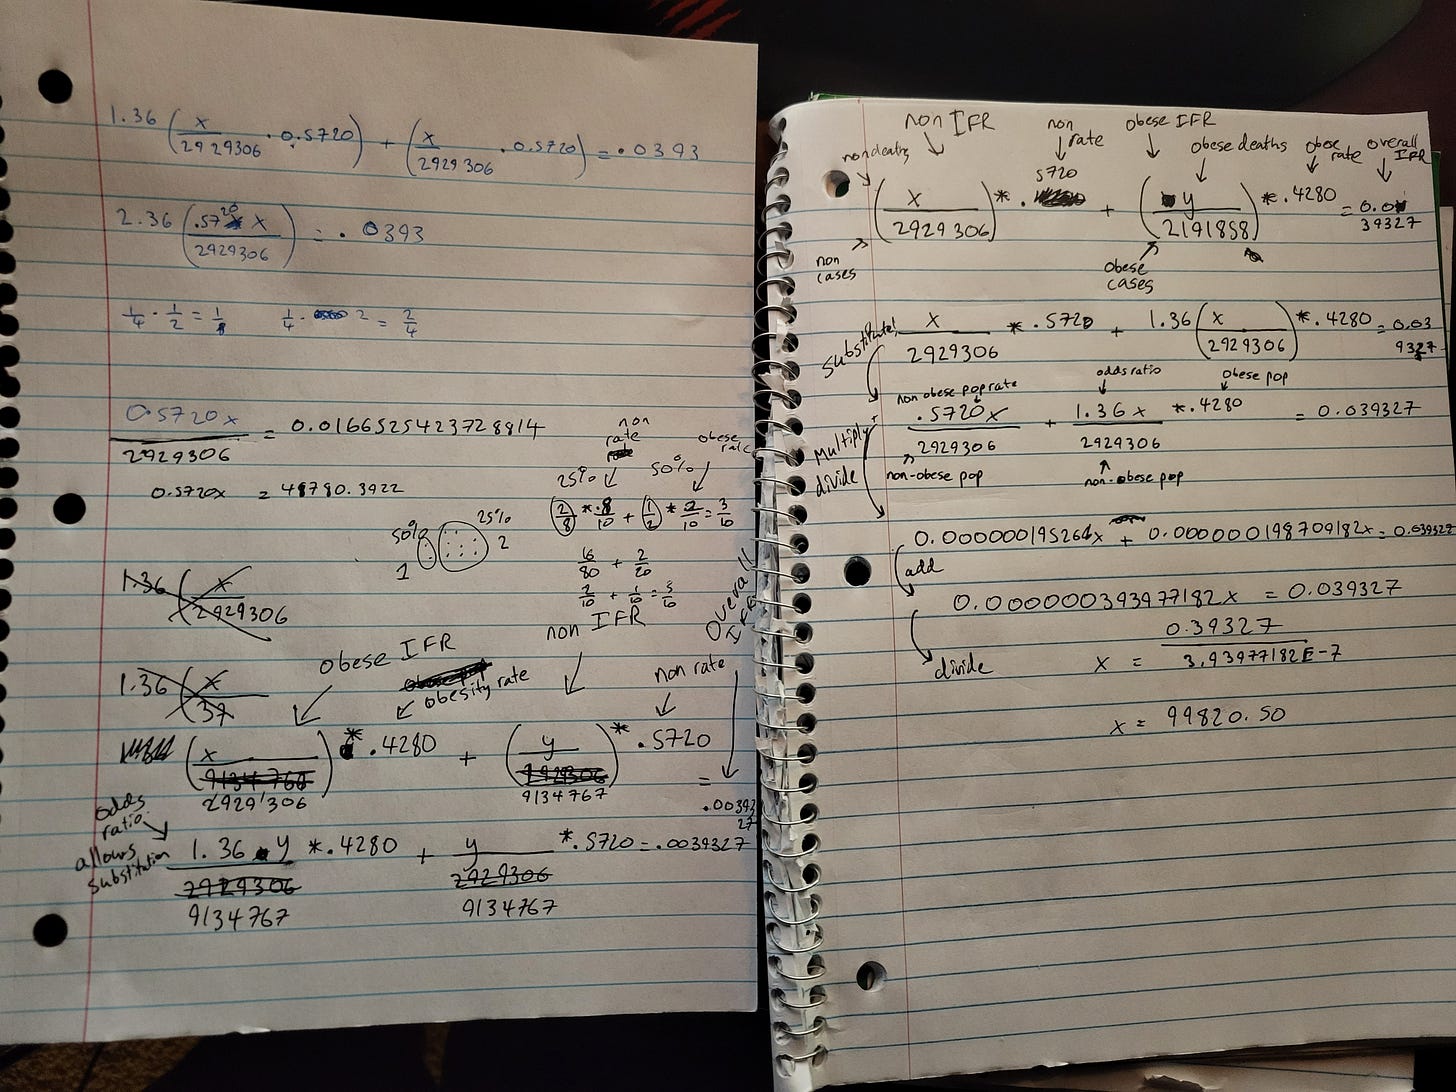 1.36 (x/2929306 · 0.5720) + (x/2929306 · 0.5720) = .0393
2.36 (.5720 x/2929306) = .0393
1/4 · 1/2 = 1/8 1/4 · 2 = 2/4
0.5720x/2929306 = 0.0166525423728814
0.5720x = 48780.3922
non
rate
obese
25% 50%
2/8 * 8/10 + 1/2 * 2/10 = 3/10
50% 25%
1 2
16/80 + 2/20
2/10 + 1/10 = 3/10
1.36 (x/2929306)
1.36 (x/37)
obese IFR
obesity rate
non IFR
non rate
Overall
IFR
(x/2929306) * .4280 + (y/9134767) * .5720 = .0039327
odds
ratio
allows
substitution
1.36 y/9134767 * .4280 + y/9134767 * .5720 = .0039327
non IFR
non
rate
obese IFR
obese deaths
obese
rate
overall
IFR
non deaths
(x/2929306) * .5720 + (y/2191858) * .4280 = 0.039327
non
cases
obese
cases
substitute!
x/2929306 * .5720 + 1.36 (x/2929306) * .4280 = 0.039327
non obese pop rate
odds ratio
obese pop
multiply +
divide
.5720x/2929306 + 1.36x/2929306 * .4280 = 0.039327
non-obese pop
non-obese pop
0.000000195268x + 0.000000198709182x = 0.039327
add
0.000000393977182x = 0.039327
divide
x = 0.39327/3.93977182E-7
x = 99820.50